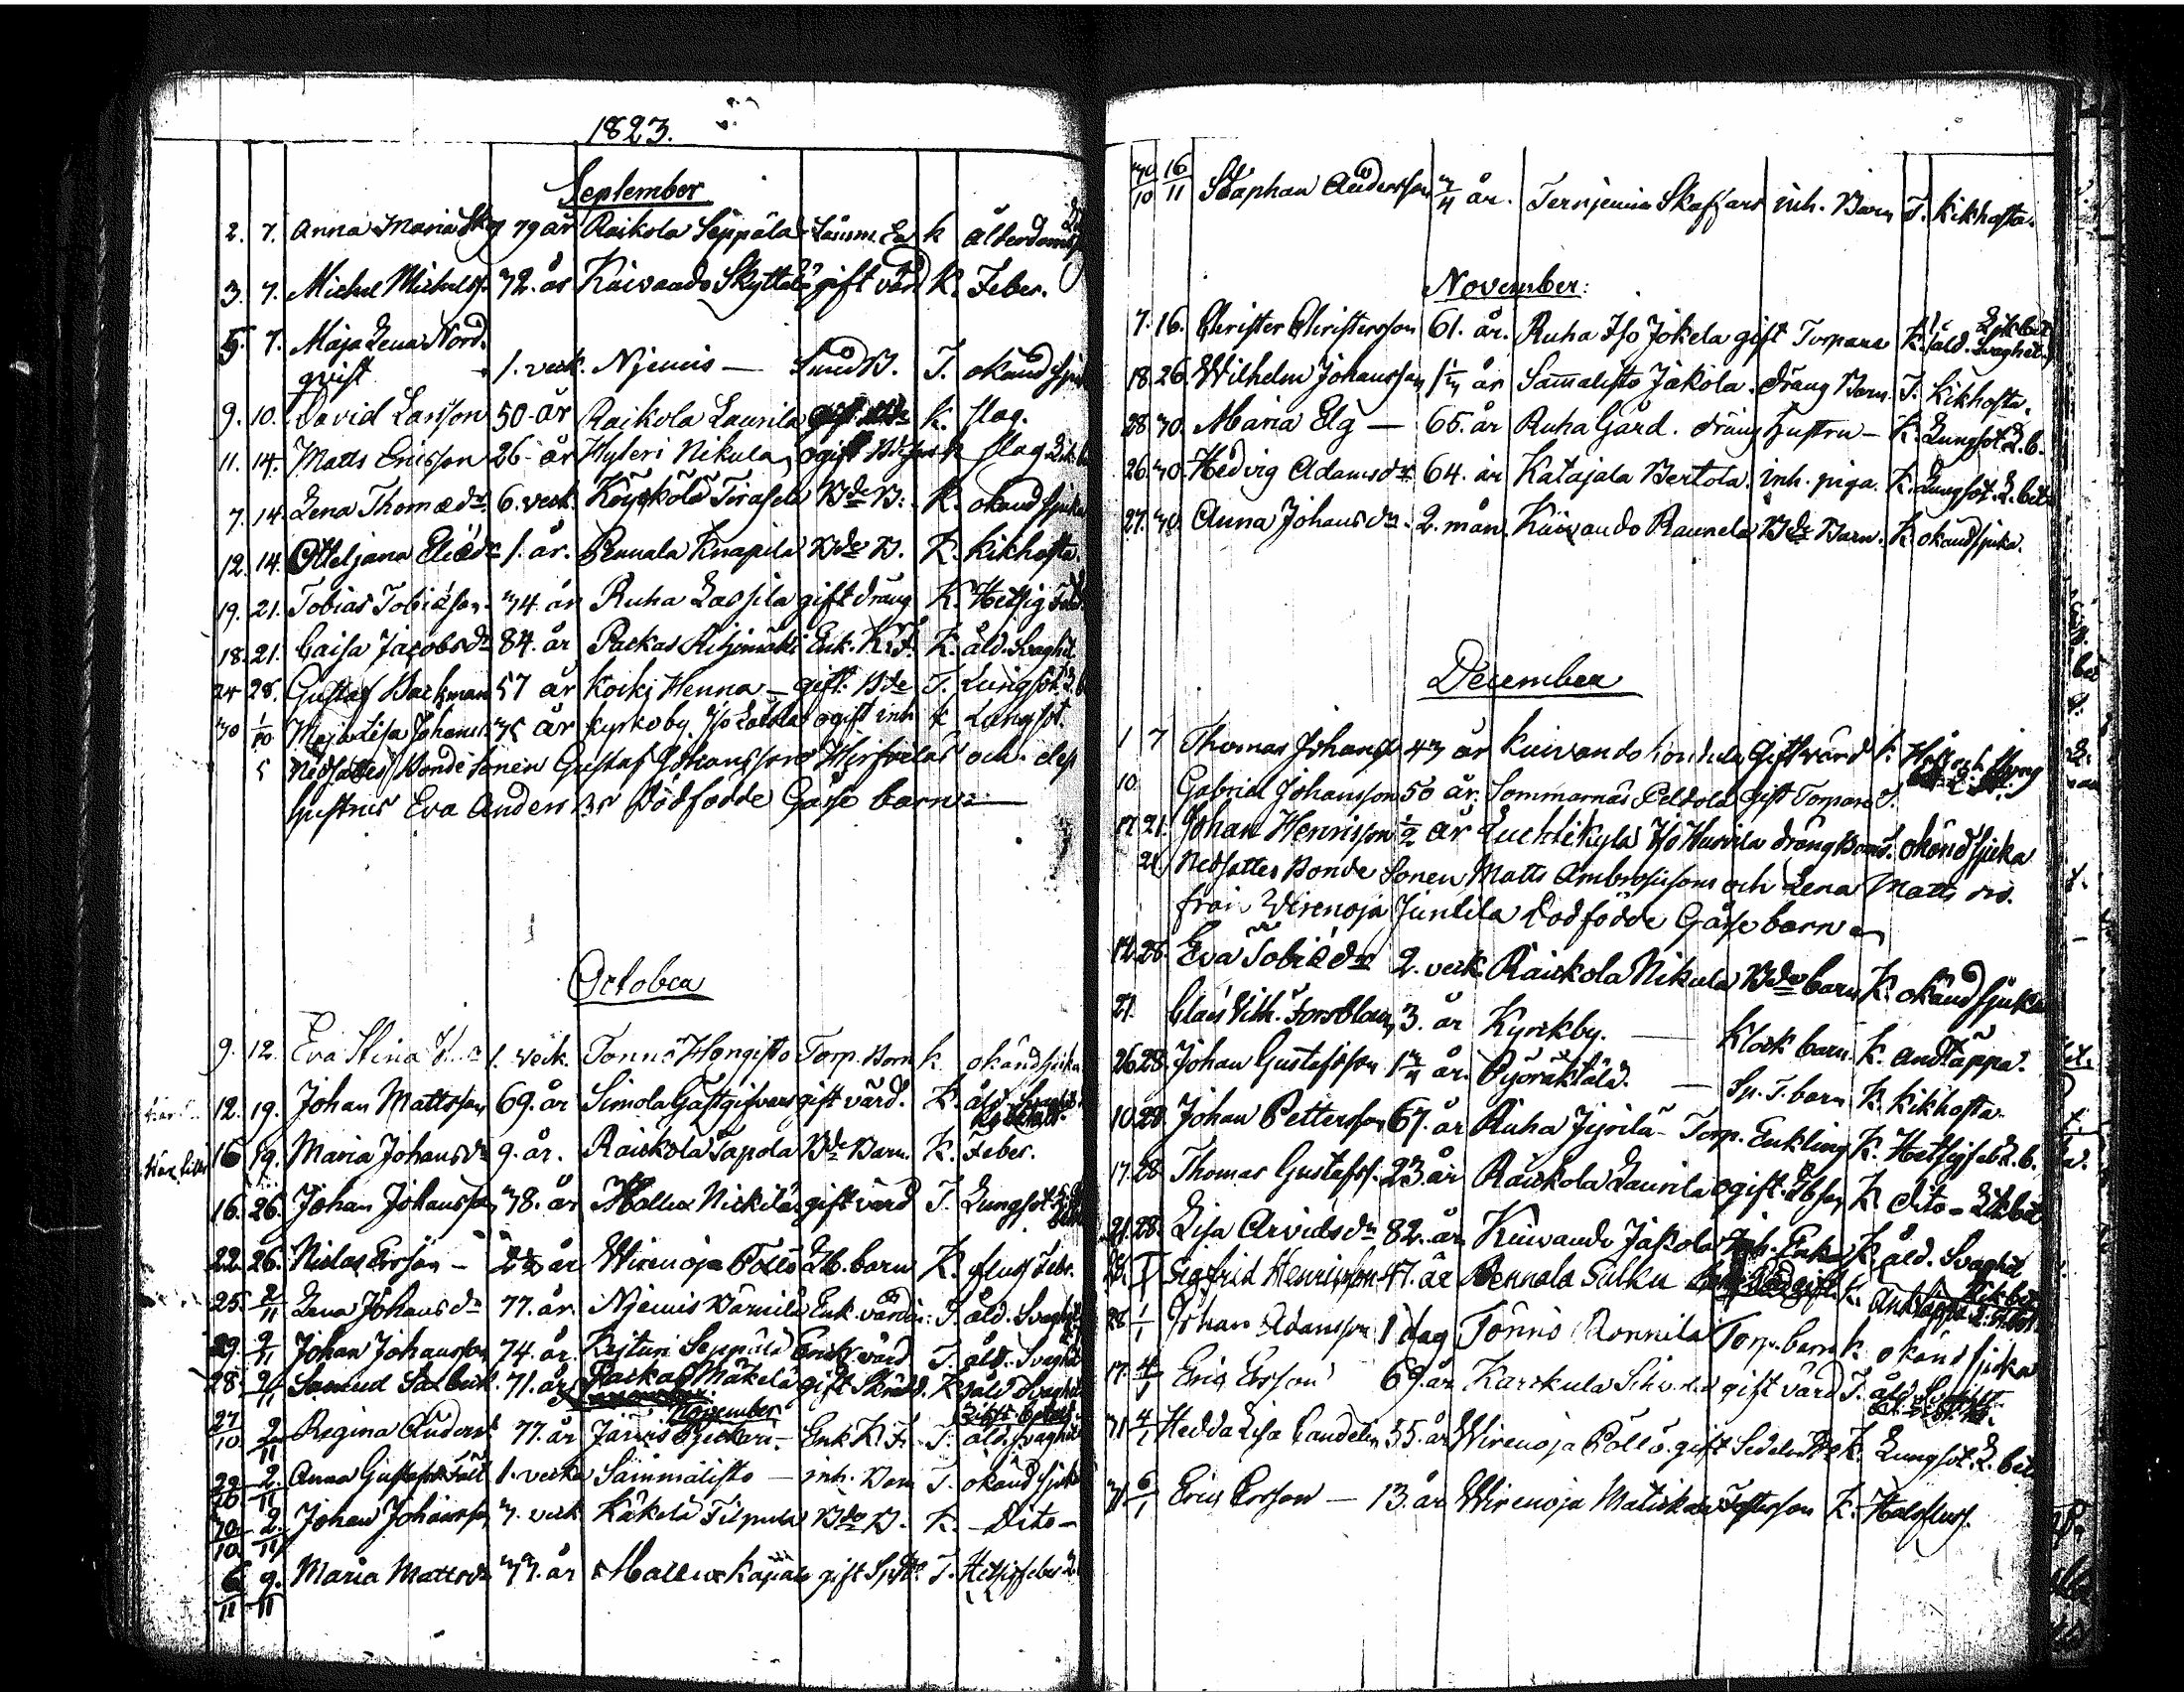 1823.
September
2. 7. Anna Maria 79 år Raikola Seppälä k ålderdoms
3. 7. Michel Michelss. 72. år Kuivando Skyttälä gift värd K. Feber.
5. 7. Maja Lena Nord-
qvist 1. veck. Njemis — T. okänd sjuk
9. 10. David Larsson 50 år Raikola Laurila k. slag.
11. 14. Matts Ericsson 26 år Hyteri Nikula ogift k slag
7. 14. Lena Thomædr. 6. veck. Köyskölä Tirasela Bde B. K. okänd sjuka
12. 14. Otteljana Eliædr 1. år. Pennala Knapila Bde B. K. Kikhosta.
19. 21. Tobias Tobiæson. 34. år Ruha Lassila gift dräng K. Hetsig Feb.
18. 21. Caisa Jacobsdr 84. år Packas Rihimäki Enk. K. åld. Svaghet.
24 28. Gustaf Backman 57 år Koiki Henna — gift. Bde T. Lungsot.
30 1/10 Maja Lisa Johansd. 35 år kyrkoby Iso ogift inh k Lungsot.
5 Nedsattes Bonde sonen Gustaf Johanssons Hirsvelas och des
hustrus Eva Andersdrs Dödfödde Gosse barn —
October
9. 12. Eva Stina 1. veck. Tönnö Hongisto Torp. Barn k okänd sjuka
12. 19. Johan Mattsson 69. år Simola Gästgifvars gift värd. K. åld. Svaghet.
16 19. Maria Johansdr 9. år. Raiskola Sapola Bde Barn. K. Feber.
16. 26. Johan Johansson 38. år Mallu Nickilä gift värd T. Lungsot
22. 26. Niclas Ersson — år Wirenoja Pöllö barn K. Febr.
25. 2/11 Lena Johansdr 77. år. Njemis Värnilä Enk. värdin: T. åld. Svaghet
29. 2/11 Johan Johansson 74. år. Seppälä Enkl. värd T. åld. Svaghet
28. 2/11 Samuel 71. år Packas Mäkelä gift K åld Svaghet
November
27/10 2/11 Regina Andersd. 77. år Enk. T. åld. Svaghet
29/10 2/11 Anna Gustafsd. 1. vecka Sammalisto — inh. Barn T. okänd sjuka
30/10 2/11 Johan Johansson 3. veck Käkelä Tilpula Bde B. K. — Dito —
6/11 9/11 Maria Mattsdr 33. år Mallu gift T. Hetsig feber
30/10 16/11 Staphan Andersson 3/4 år. Ternjemis Skaffars inh. Barn T. Kikhosta.
November:
7. 16. Christer Christersson 61. år. Ruha Iso Jokela gift Torpare K. åld. Svaghet.
18. 26. Wilhelm Johansson år Samalisto Jakola. dräng Barn. T. Kikhosta.
28 30. Maria Elg — 65. år Ruha Gård. dräng Hustru — K. Lungsot. L. b.
26. 30. Hedvig Adamsdr 64. år Katajala Bertola. inh. piga. K. Lungsot. L. bet.
27. 30. Anna Johansdr. 2. mån. Kuivando Raunela Bde Barn. K. okänd sjuka.
December
1 7 Thomas Johanss. 43 år kuivando Gift värd k.
10 Gabriel Johansson 50 år. Sommarnäs Peltola gift Torpare T.
17. 21. Johan Henrisson 1/2 år Luchtikylä Iso dräng Barn T. okänd sjuka
21. Nedsattes Bonde Sonen Matts Ambrosissons och Lena Matts drs.
från Wirenoja Juntila Dödfödde Gosse barn
14. 28. Eva Tobiædr 2. veck. Raiskola Nikula Bde barn K. okänd sjuka
21. Claes Vilh. Forsblom 3. år Kyrkby. — Klock barn. K. andtäppa.
26. 28. Johan Gustafsson 1 3/4 år. Pyöräktälä. — Sp. T. barn K. Kikhosta
10. 28. Johan Pettersson 67. år Ruha Jyrilä Torp. Enkling K. Hetsig feb. L. b.
17. 28 Thomas Gustafss. 23. år Raiskola Laurila ogift. K. dito — L. bet
21. 28. Lisa Arvidsdr 82. år Kuivando Jakola Inh. Enka K. åld. Svaghet
Sigfrid Henrisson 47. år Pennala Sulku gift. K. Andtäppa
28 1/1 Johan Adamsson 1 dag Tönnö Ronnila Torp. barn k. okänd sjuka
17. 4/1 Eric Ersson 69. år Karskula gift värd T. åld. Svaghet
31 4/1 Hedda Lisa Candelin 55. år Wirenoja Pöllö. gift K. Lungsot. L. bet
31 6/1 Eric Ersson — 13. år Wirenoja Matiskas K. Halsfluss.